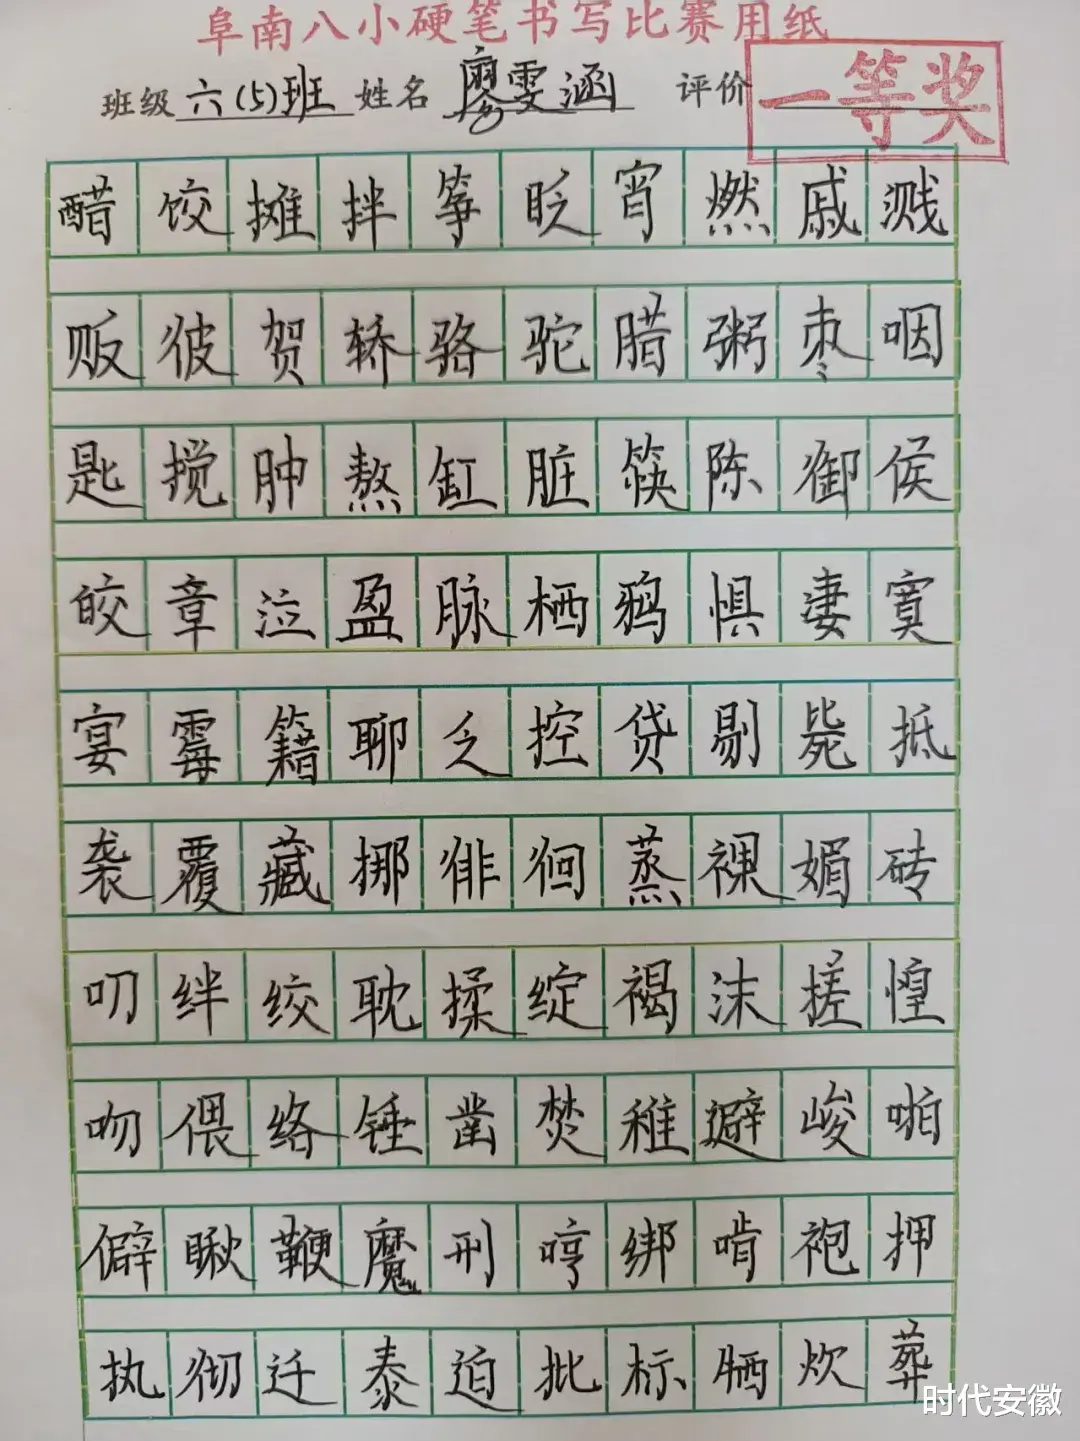 阜南八小硬笔书写比赛用纸
班级 六(5)班 姓名 廖雯涵 评价 一等奖
醋饺摊拌筝眨宵燃戚溅
贩彼贺轿骆驼腊粥枣咽
匙搅肿熬缸脏筷陈御侯
皎章泣盈脉栖鸦惧凄寞
宴霉籍聊乏控贷剔毙抵
袭覆藏挪徘徊蒸裸媚砖
叨绊绞耽揉绽褐沫搓惶
吻偎络锤凿焚稚避峻啪
僻瞅鞭魔刑哼绑啃袍押
执彻迁泰迫批标牺炊葬
时代安徽